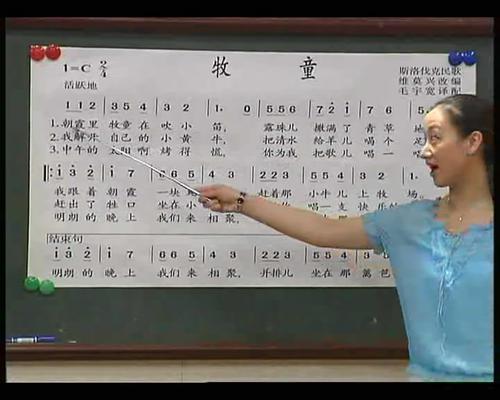 牧 童
1=C 2/4
斯洛伐克民歌
维莫兴改编
活跃地
毛宇宽译配
1 1 2 3 5 4 3 2 1. 0 5 5 6 7 2 i 7 6
1. 朝霞里 牧童在 吹小笛, 露珠儿 撒满了 青草地
2. 我解开 自己的 小黄牛, 把清水 给羊儿 喝个
3. 中午的 太阳啊 烤得慌, 你为我 把歌儿 唱一
i 3 2 i 7 6 6 5 4 3 2 2 3
我跟着 朝霞 一块 赶着那 小牛儿 上牧场。
赶出了 牲口 坐在小 唱一支 快乐的
明朗的 晚上 我们来 相聚,
结束句
i 3 2 i 7 6 6 5 4 3 2 2 3 5 5 4
明朗的 晚上 我们来 相聚, 并排儿 坐在那 篱笆